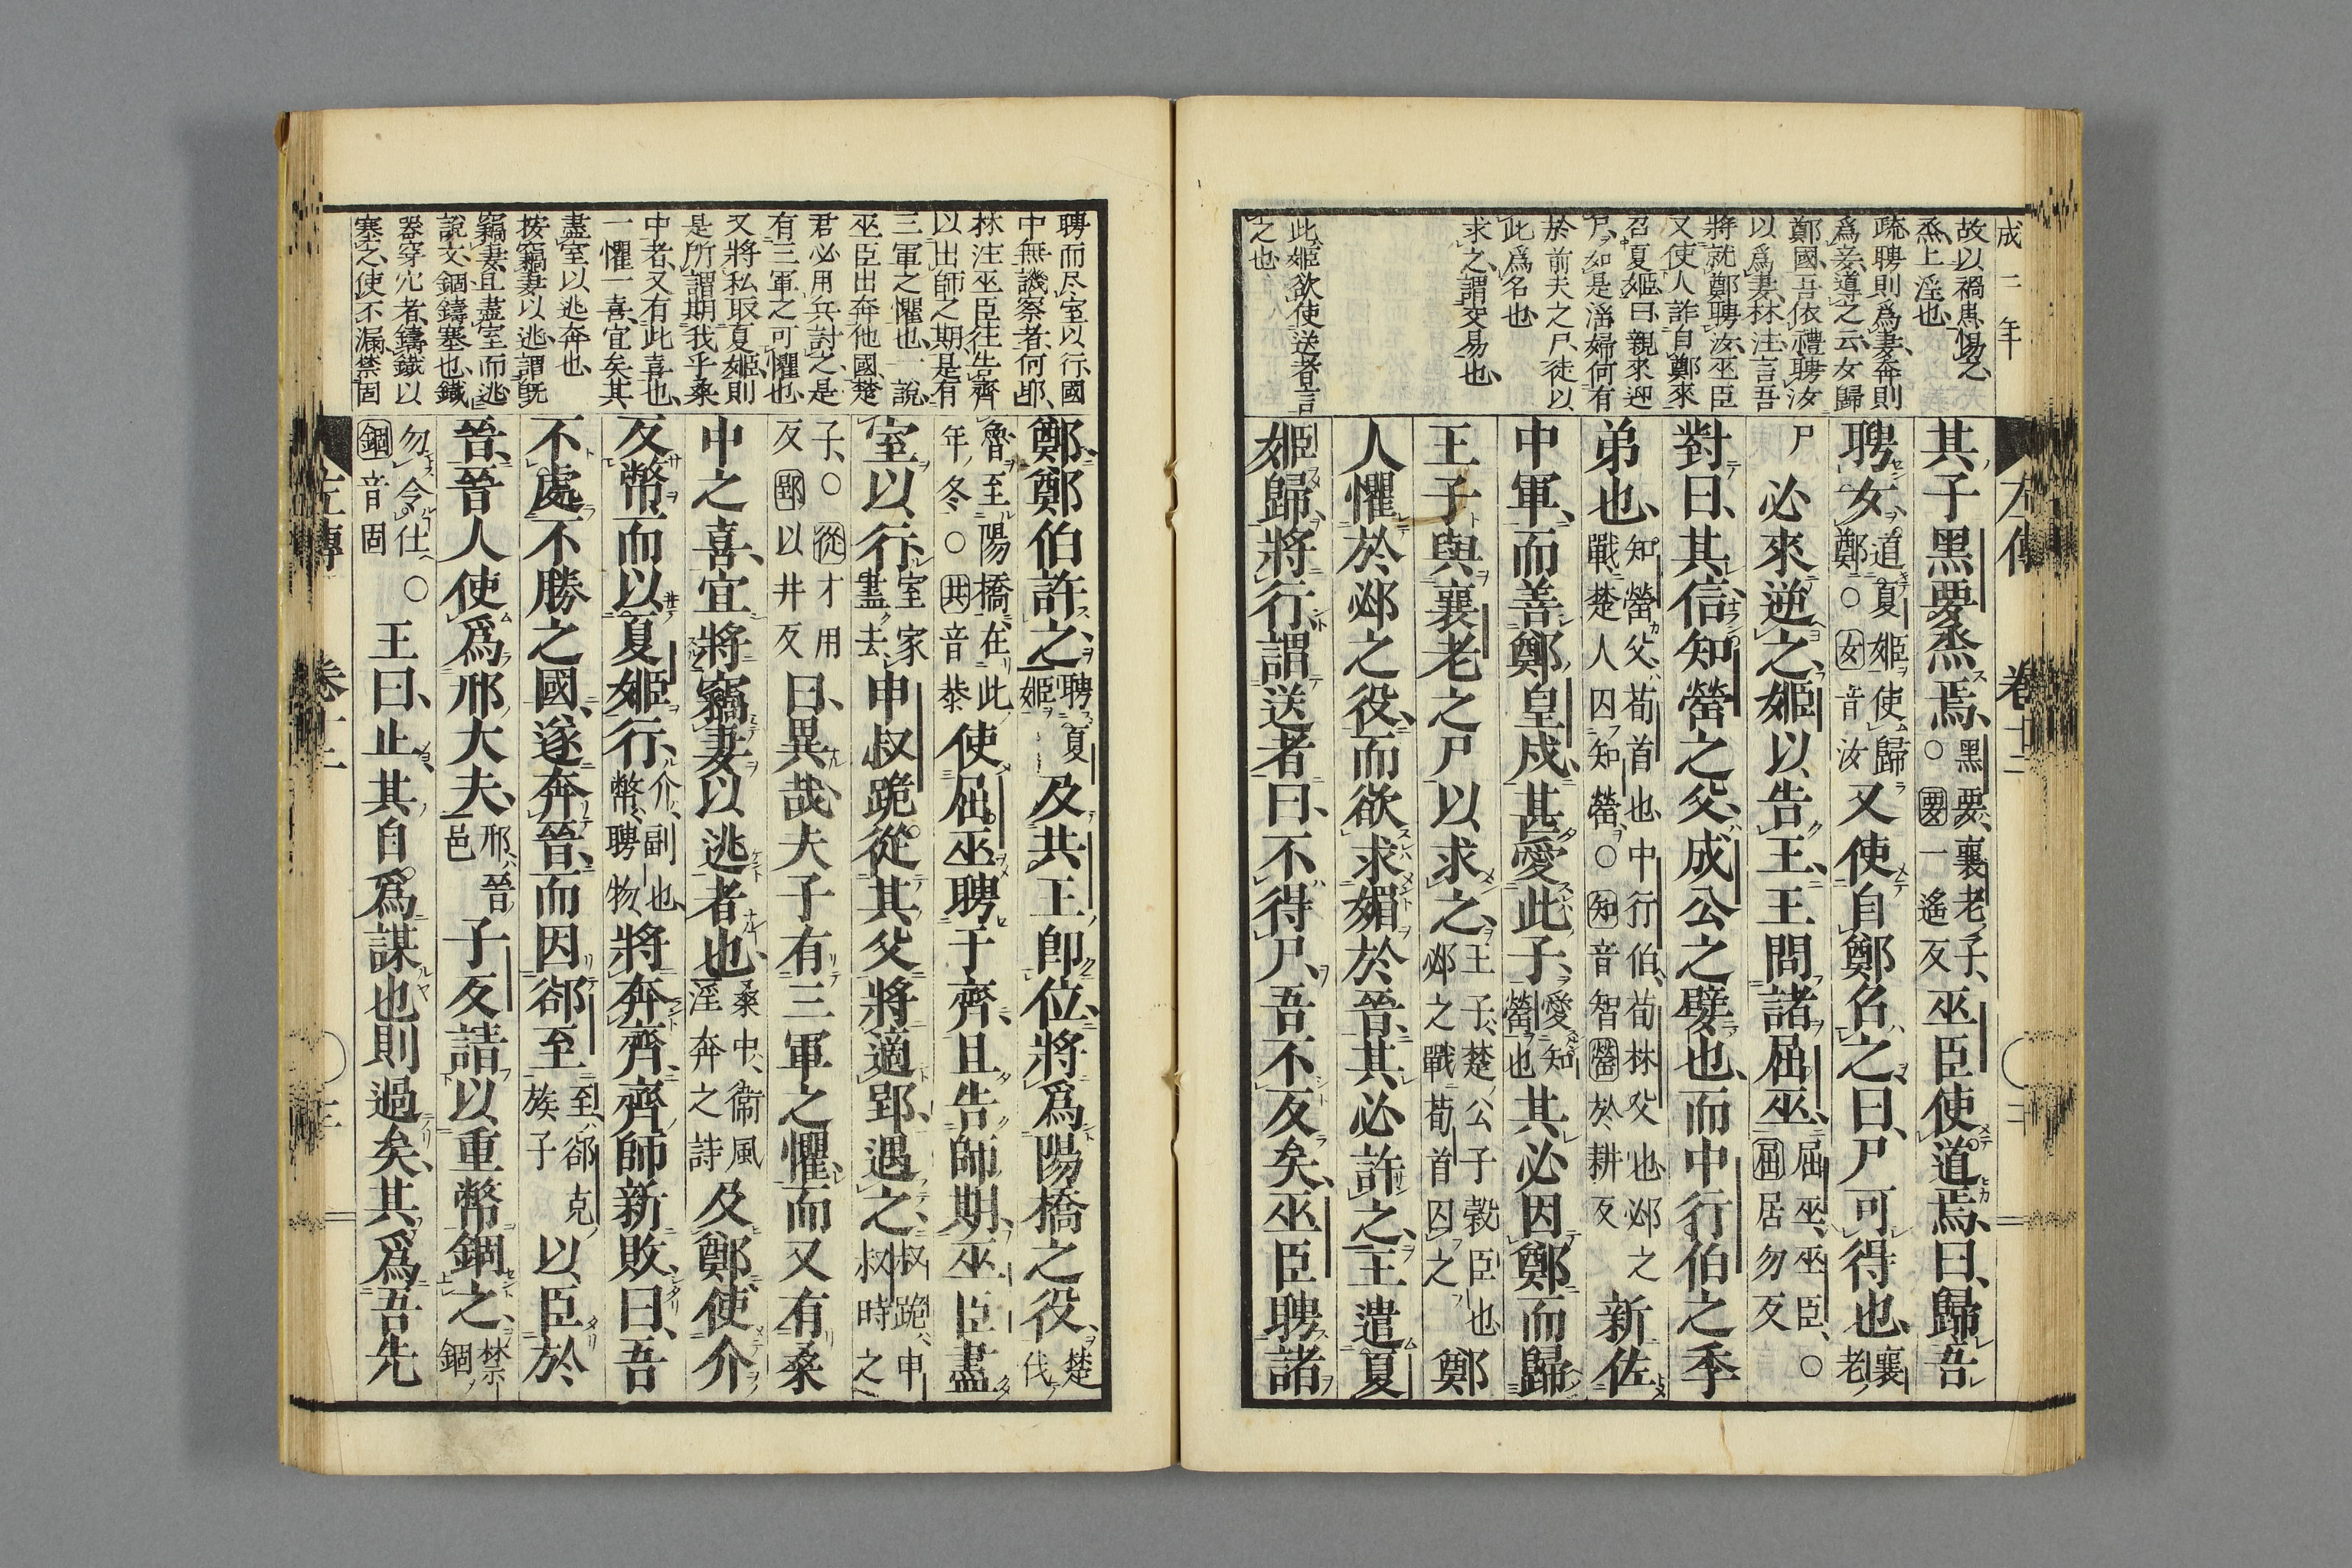 成二年
故以禍患惕之
烝上淫也
疏聘則爲妻奔則
爲妾導之云女歸
鄭國吾依禮聘汝
以爲妻林注言吾
將就鄭聘汝巫臣
又使人詐自鄭來
召夏姬曰親來迎
尸如是滛婦何有
於前夫之尸徒以
此爲名也
求之謂交易也
此姬欲使送者言
之也
左傳 卷十二
其子黑要烝焉黑要襄老子○要一遙反巫臣使道焉曰歸吾
聘女道夏姬使歸鄭○女音汝又使自鄭召之曰尸可得也襄老
尸必來逆之姬以告王王問諸屈巫屈巫巫臣○屈居勿反
對曰其信知罃之父成公之嬖也而中行伯之季
弟也知罃父荀首也中行伯荀林父也邲之戰楚人囚知罃○知音智罃於耕反新佐
中軍而善鄭皇戍甚愛此子愛知罃也其必因鄭而歸
王子與襄老之尸以求之王子楚公子穀臣也邲之戰荀首囚之鄭
人懼於邲之役而欲求媚於晉其必許之王遣夏
姬歸將行謂送者曰不得尸吾不反矣巫臣聘諸
聘而尽室以行國
中無譏察者何耶
林注巫臣往告齊
以出師之期是有
三軍之懼也一說
巫臣出奔他國楚
君必用兵討之是
有三軍之可懼也
又將私取夏姬則
是所謂期我乎桑
中者又有此喜也
一懼一喜宜矣其
盡室以逃奔也
按竊妻以逃謂既
竊妻且盡室而逃
說文錮鑄塞也鐵
器穿穴者鑄鐵以
塞之使不漏禁固
鄭鄭伯許之聘夏姬及共王卽位將爲陽橋之役楚伐
魯至陽橋在此年冬○共音恭使屈巫聘于齊且告師期巫臣盡
室以行室家盡去申叔跪從其父將適郢遇之叔跪申叔時之
子○從才用反郢以井反曰異哉夫子有三軍之懼而又有桑
中之喜宜將竊妻以逃者也桑中衞風淫奔之詩及鄭使介
反幣而以夏姬行介副也幣聘物將奔齊齊師新敗曰吾
不處不勝之國遂奔晉而因郤至至郤克族子以臣於
晉晉人使爲邢大夫邢晉邑子反請以重幣錮之禁錮
勿令仕○錮音固王曰止其自爲謀也則過矣其爲吾先
左傳 卷十二